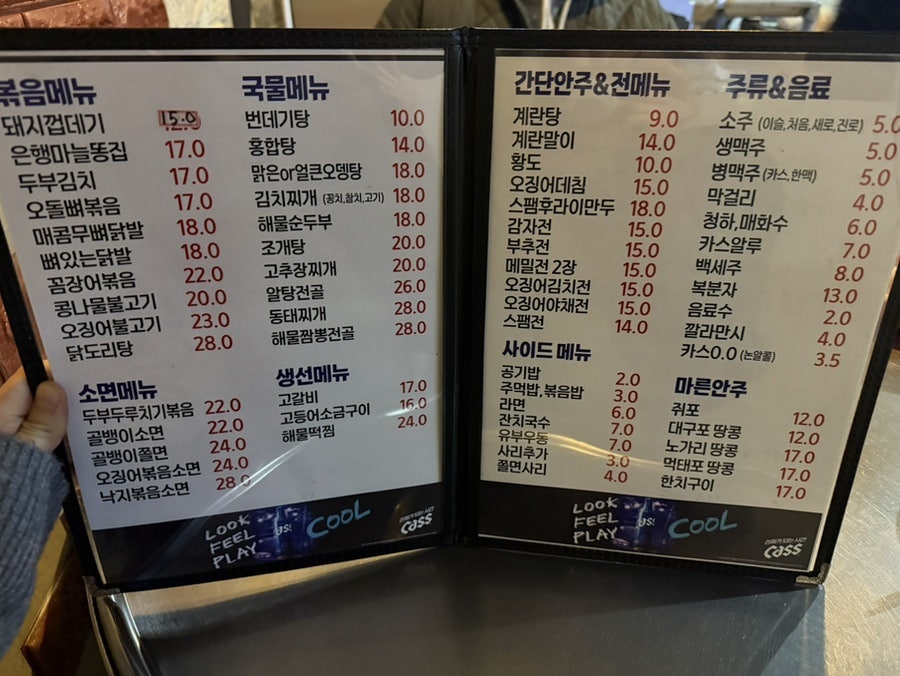 볶음메뉴
돼지껍데기 15.0
은행마늘똥집 17.0
두부김치 17.0
오돌뼈볶음 17.0
매콤무뼈닭발 18.0
뼈있는닭발 18.0
꼼장어볶음 22.0
콩나물불고기 20.0
오징어불고기 23.0
닭도리탕 28.0
소면메뉴
두부두루치기볶음 22.0
골뱅이소면 22.0
골뱅이쫄면 24.0
오징어볶음소면 24.0
낙지볶음소면 28.0
국물메뉴
번데기탕 10.0
홍합탕 14.0
맑은or얼큰오뎅탕 18.0
김치찌개 (꽁치,참치,고기) 18.0
해물순두부 18.0
조개탕 20.0
고추장찌개 20.0
알탕전골 26.0
동태찌개 28.0
해물짬뽕전골 28.0
생선메뉴
고갈비 17.0
고등어소금구이 16.0
해물떡찜 24.0
LOOK
FEEL
PLAY
COOL
Cass
간단안주&전메뉴
계란탕 9.0
계란말이 14.0
황도 10.0
오징어데침 15.0
스팸후라이만두 18.0
감자전 15.0
부추전 15.0
메밀전 2장 15.0
오징어김치전 15.0
오징어야채전 15.0
스팸전 14.0
사이드 메뉴
공기밥 2.0
주먹밥,볶음밥 3.0
라면 6.0
잔치국수 7.0
유부우동 7.0
사리추가 3.0
쫄면사리 4.0
주류&음료
소주 (이슬,처음,새로,진로) 5.0
생맥주 5.0
병맥주 (카스,한맥) 5.0
막걸리 4.0
청하,매화수 6.0
카스알루 7.0
백세주 8.0
복분자 13.0
음료수 2.0
깔라만시 4.0
카스0.0 (논알콜) 3.5
마른안주
쥐포 12.0
대구포 땅콩 12.0
노가리 땅콩 17.0
먹태포 땅콩 17.0
한치구이 17.0
LOOK
FEEL
PLAY
COOL
Cass